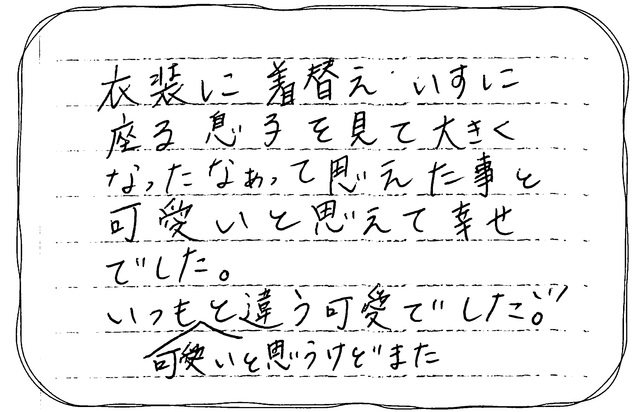 衣装に着替え いすに
座る息子を見て大きく
なったなぁって思えた事と
可愛いと思えて幸せ
でした。
いつもと違う可愛でした。
可愛いと思うけどまた